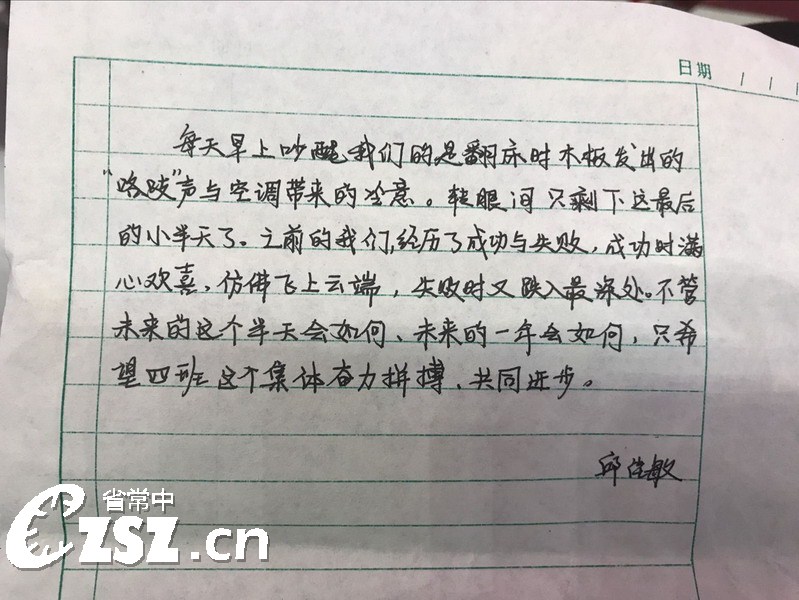 日期
每天早上吵醒我们的是翻床时木板发出的
“咯吱”声与空调带来的冷意。转眼间只剩下这最后
的小半天了。之前的我们,经历了成功与失败,成功时满
心欢喜、仿佛飞上云端,失败时又跌入最深处。不管
未来的这个半天会如何、未来的一年会如何,只希
望四班这个集体奋力拼搏、共同进步。
邱佳敏
省常中
czsz.cn